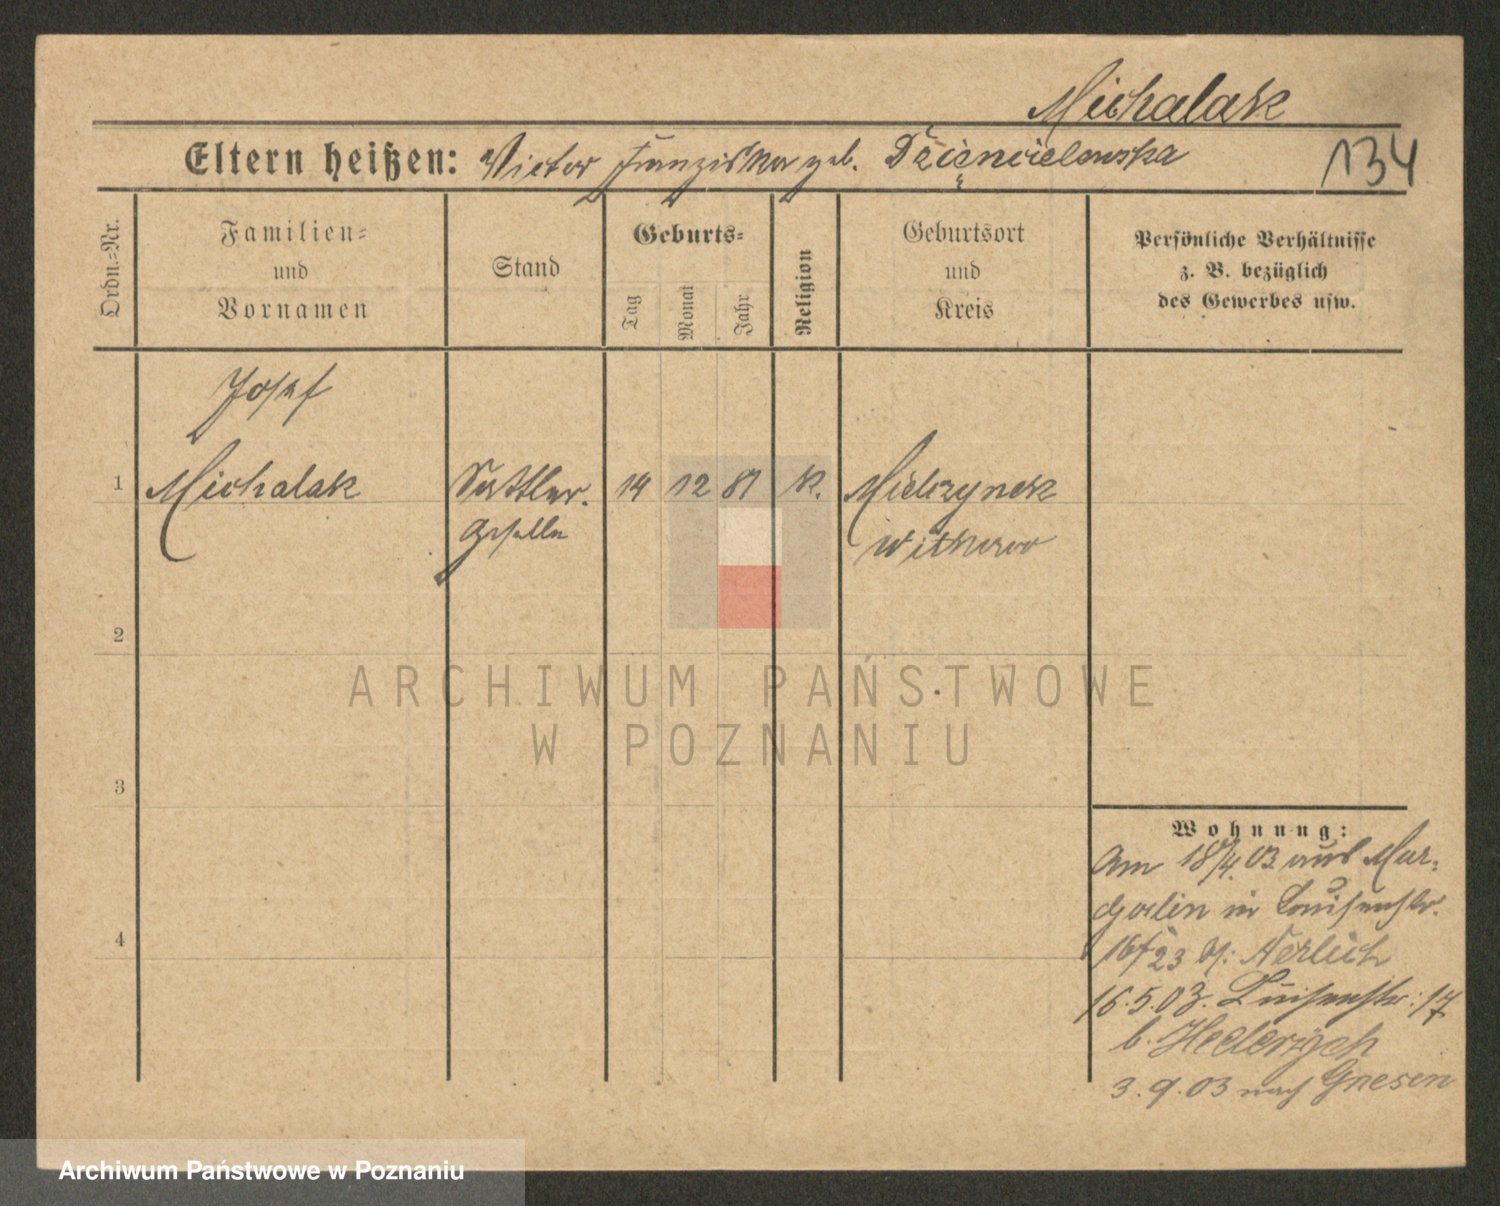 Michalak
Eltern heißen: Victor Franziska geb. Dzięncielewska
134
Ordn.=Nr.
Familien=
und
Vornamen
Stand
Geburts=
Tag
Monat
Jahr
Religion
Geburtsort
und
Kreis
Persönliche Verhältnisse
z. B. bezüglich
des Gewerbes usw.
Josef
1 Michalak Sattler. 14 12 81 K. Mielczynek
Geselle Witkowo
2
ARCHIWUM PAŃSTWOWE
W POZNANIU
3
Wohnung:
Am 18/4.03 aus Mar=
golin in Louisenstr.
4
16/23 b: Nerlich
16.5.03. Luisenstr: 17
b.
3.9.03 nach Gnesen
Archiwum Państwowe w Poznaniu